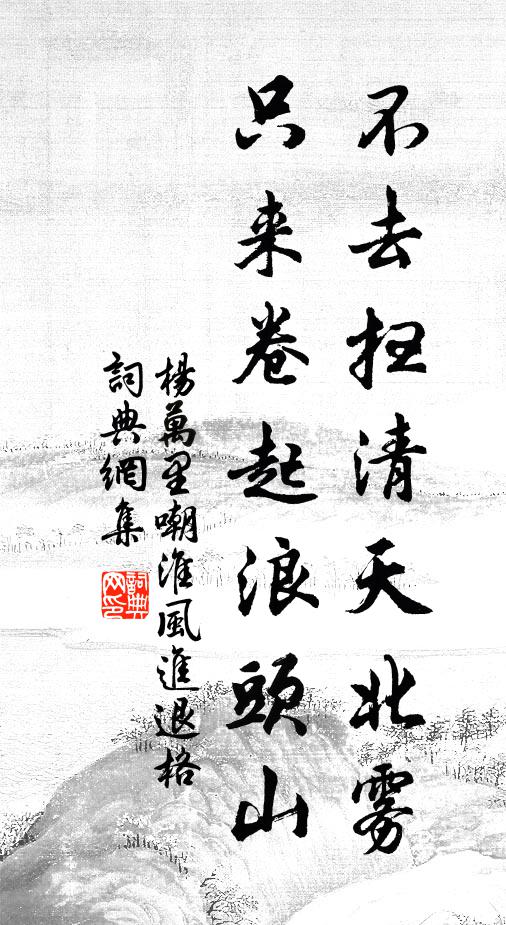 不去扫清天北雾
只来卷起浪頭山
楊萬里嘲淮風進退格
詞典網集
詞典
网印